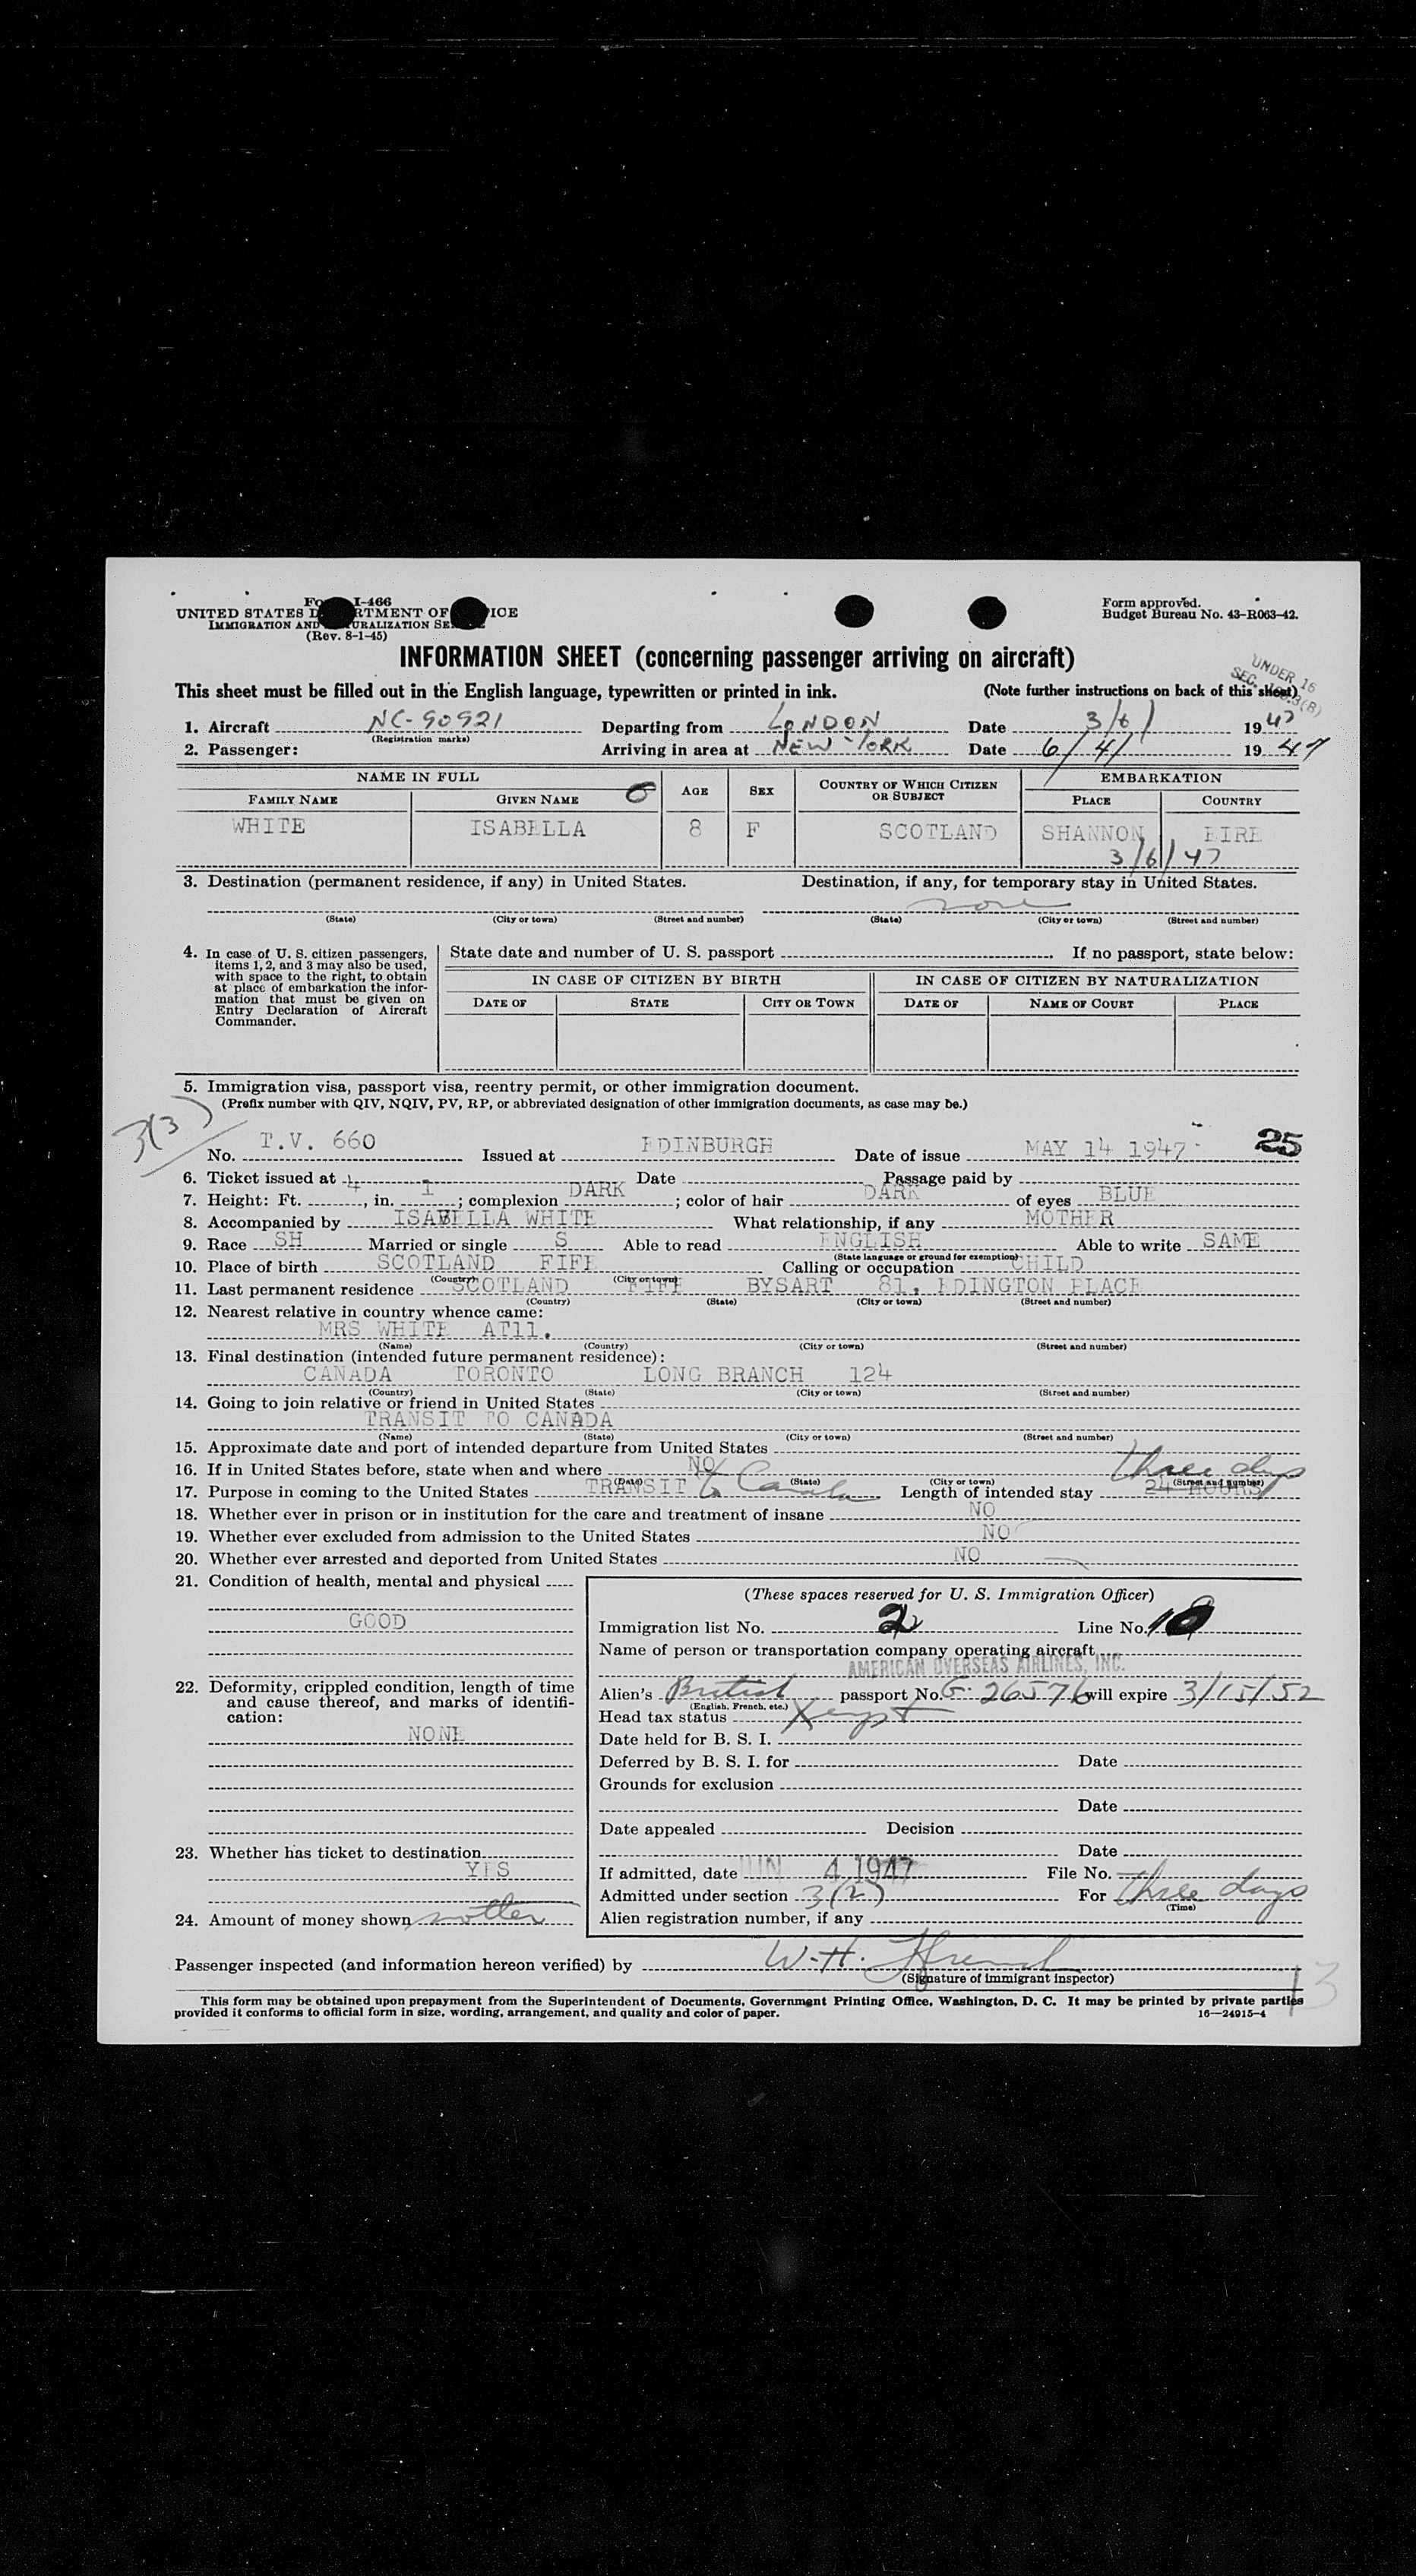 Form I-466
UNITED STATES DEPARTMENT OF JUSTICE
IMMIGRATION AND NATURALIZATION SERVICE
(Rev. 8-1-45)
Form approved.
Budget Bureau No. 43-R063-42.
INFORMATION SHEET (concerning passenger arriving on aircraft)
UNDER 16
This sheet must be filled out in the English language, typewritten or printed in ink. (Note further instructions on back of this sheet)
1. Aircraft NC-90921 Departing from LONDON Date 3/6/ 1947
(Registration marks)
2. Passenger: Arriving in area at NEW-YORK Date 6/4/ 1947
NAME IN FULL AGE SEX COUNTRY OF WHICH CITIZEN OR SUBJECT EMBARKATION
FAMILY NAME GIVEN NAME PLACE COUNTRY
WHITE ISABELLA 8 F SCOTLAND SHANNON EIRE
3/6/47
3. Destination (permanent residence, if any) in United States. Destination, if any, for temporary stay in United States.
none
(State) (City or town) (Street and number) (State) (City or town) (Street and number)
4. In case of U. S. citizen passengers, items 1, 2, and 3 may also be used, with space to the right, to obtain at place of embarkation the information that must be given on Entry Declaration of Aircraft Commander.
State date and number of U. S. passport If no passport, state below:
IN CASE OF CITIZEN BY BIRTH IN CASE OF CITIZEN BY NATURALIZATION
DATE OF STATE CITY OR TOWN DATE OF NAME OF COURT PLACE
5. Immigration visa, passport visa, reentry permit, or other immigration document.
(Prefix number with QIV, NQIV, PV, RP, or abbreviated designation of other immigration documents, as case may be.)
3(3)
No. T.V. 660 Issued at EDINBURGH Date of issue MAY 14 1947 25
6. Ticket issued at Date Passage paid by
7. Height: Ft. 4, in. 1; complexion DARK; color of hair DARK of eyes BLUE
8. Accompanied by ISABELLA WHITE What relationship, if any MOTHER
9. Race SH Married or single S Able to read ENGLISH Able to write SAME
(State language or ground for exemption)
10. Place of birth SCOTLAND FIFE Calling or occupation CHILD
(Country) (City or town)
11. Last permanent residence SCOTLAND FIFE BYSART 81, EDINGTON PLACE
(Country) (State) (City or town) (Street and number)
12. Nearest relative in country whence came:
MRS WHITE AT11.
(Name) (Country) (City or town) (Street and number)
13. Final destination (intended future permanent residence):
CANADA TORONTO LONG BRANCH 124
(Country) (State) (City or town) (Street and number)
14. Going to join relative or friend in United States
TRANSIT TO CANADA
(Name) (State) (City or town) (Street and number)
15. Approximate date and port of intended departure from United States
16. If in United States before, state when and where NO three days
(Date) (State) (City or town) (Street and number)
17. Purpose in coming to the United States TRANSIT to Canada Length of intended stay 24 HOURS
18. Whether ever in prison or in institution for the care and treatment of insane NO
19. Whether ever excluded from admission to the United States NO
20. Whether ever arrested and deported from United States NO
21. Condition of health, mental and physical
GOOD
22. Deformity, crippled condition, length of time and cause thereof, and marks of identification:
NONE
23. Whether has ticket to destination
YES
24. Amount of money shown mother
(These spaces reserved for U. S. Immigration Officer)
Immigration list No. 2 Line No.
Name of person or transportation company operating aircraft
AMERICAN OVERSEAS AIRLINES, INC.
Alien's British passport No. G. 26576 will expire 3/15/52
(English, French, etc.)
Head tax status Xempt
Date held for B. S. I.
Deferred by B. S. I. for Date
Grounds for exclusion
Date
Date appealed Decision
Date
If admitted, date JUN 4 1947 File No.
Admitted under section 3(2) For three days
(Time)
Alien registration number, if any
Passenger inspected (and information hereon verified) by W. H.
(Signature of immigrant inspector)
13
This form may be obtained upon prepayment from the Superintendent of Documents, Government Printing Office, Washington, D. C. It may be printed by private parties
provided it conforms to official form in size, wording, arrangement, and quality and color of paper. 16—24915-4